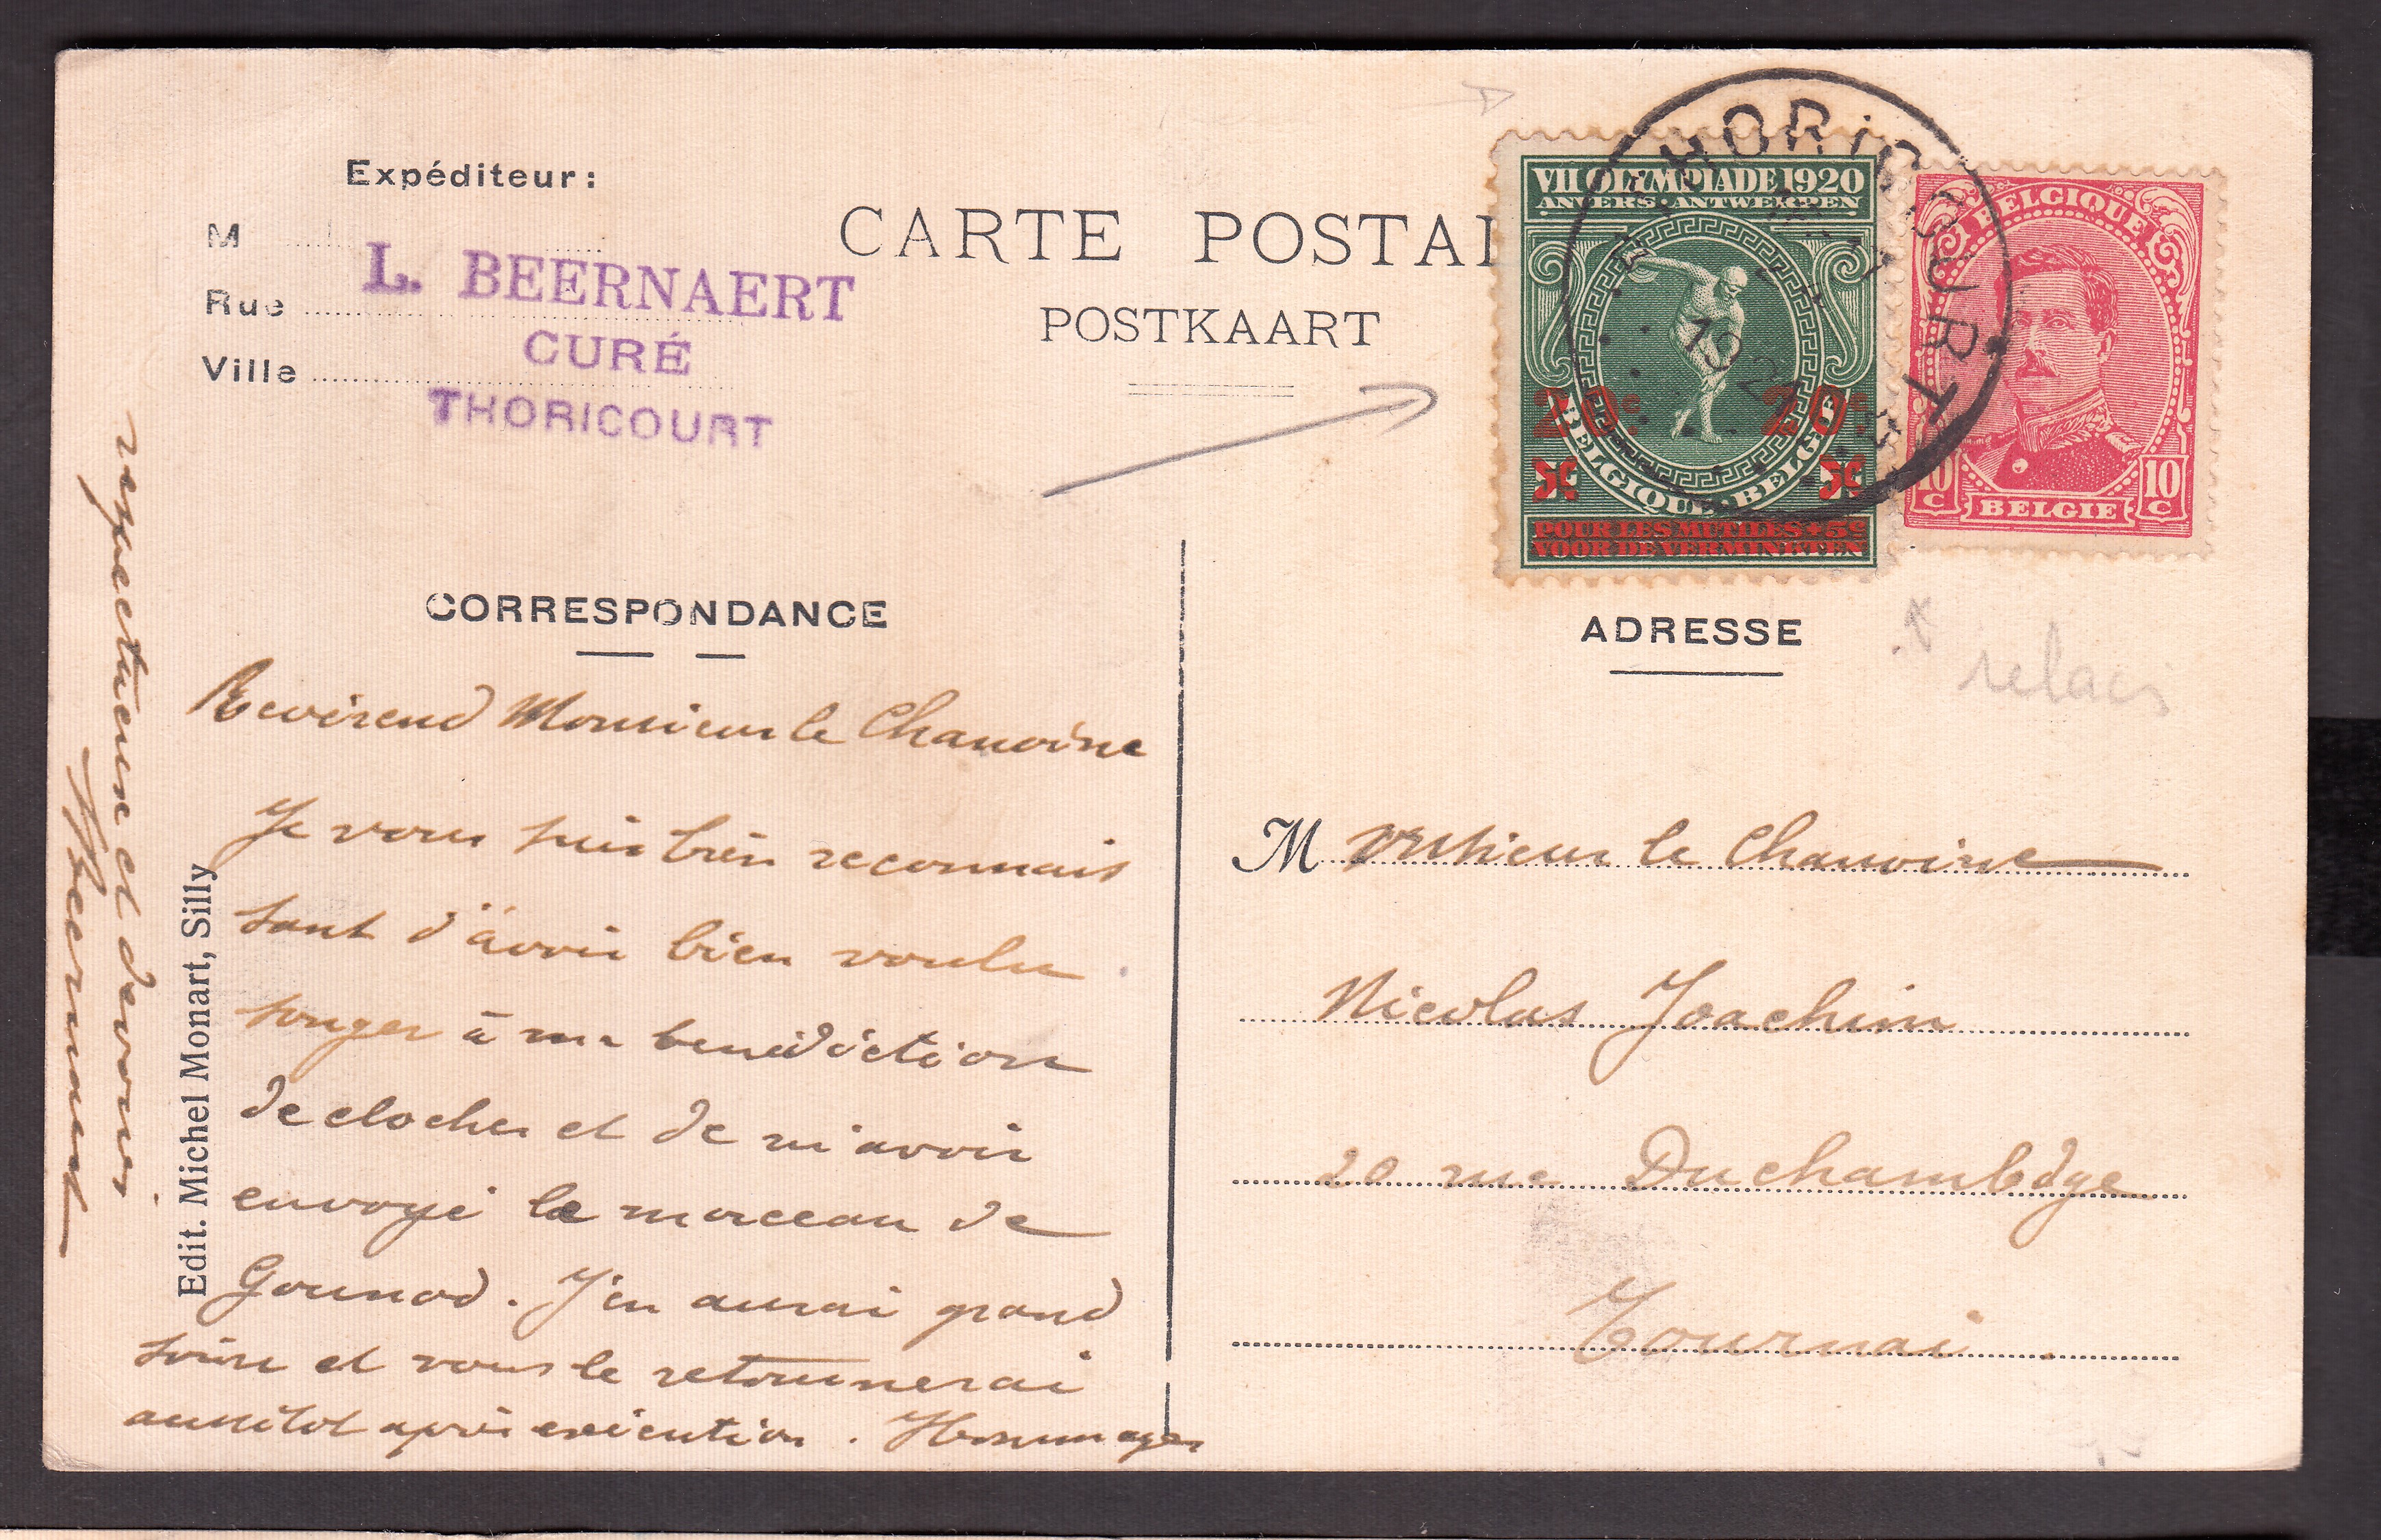 Expéditeur:
M
Rue
Ville
L. BEERNAERT
CURÉ
THORICOURT
CARTE POSTAL
POSTKAART
VII OLYMPIADE 1920
ANVERS·ANTWERPEN
20c 20c
5c 5c
BELGIQUE·BELGIË
POUR LES MUTILES+5c
VOOR DE VERMINKTEN
THORICOURT
1921
BELGIQUE
10 C 10 C
BELGIE
relais
CORRESPONDANCE
Reverend Monsieur le Chanoine
Je vous suis bien reconnais
sant d'avoir bien voulu
songer à ma bénédiction
de cloches et de m'avoir
envoyé le morceau de
Gounod. J'en aurai grand
soin et vous le retournerai
aussitôt après exécution. Hommages
respectueux et devoués
Beernaert
Edit. Michel Monart, Silly
ADRESSE
M onsieur le Chanoine
Nicolas Joachim
20 rue Duchambége
Tournai.